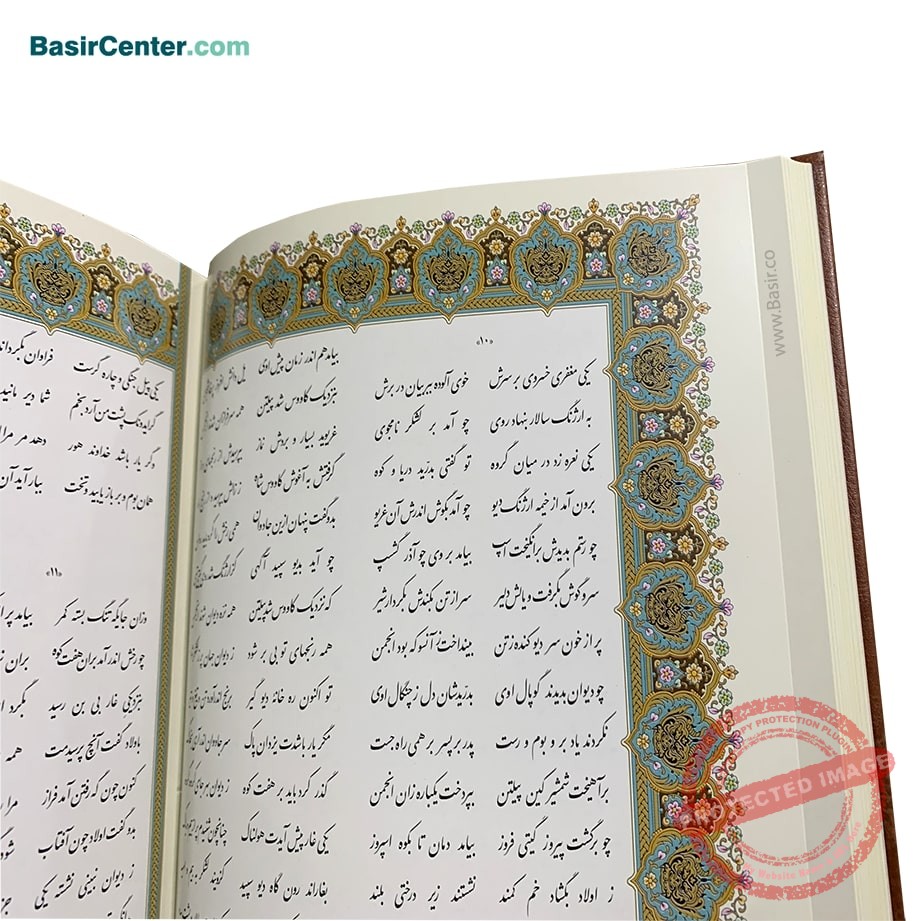 BasirCenter.com
www.Basir.co
«۱۰»
یکی مغفری خسروی بر سرش خوی آلوده ببر بیان در برش
به ارژنگ سالار بنهاد روی چو آمد بر لشکر نامجوی
یکی نعره زد در میان گروه تو گفتی بدرید دریا و کوه
برون آمد از خیمه ارژنگ دیو چو آمد بگوش اندرش آن غریو
چو رستم بدیدش برانگیخت اسپ بیامد بر وی چو آذر گشسپ
سر و گوش بگرفت و یالش دلیر سر از تن بکندش بکردار شیر
پر از خون سر دیو کنده ز تن بینداخت ز آنسو که بود انجمن
چو دیوان بدیدند کوپال اوی بدریدشان دل ز چنگال اوی
نکردند یاد بر و بوم و رست پدر بر پسر بر همی راه جست
برآهیخت شمشیر کین پیلتن بپردخت یکباره زان انجمن
چو برگشت پیروز گیتی فروز بیامد دمان تا بکوه اسپروز
ز اولاد بگشاد خم کمند نشستند زیر درختی بلند
بیامد هم اندر زمان پیش اوی یل دانش افروز
بنزدیک کاووس شد پیلتن همه سرفرازان
غریوید بسیار و بردش نماز بپرسیدش از رنجهای
گرفتش به آغوش کاووس شاه ز زالش بپرسید و از رنج
بدو گفت پنهان ازین جادوان همی رخش را کرد باید
چو آید بدیو سپید آگهی کز ارژنگ شد روی
که نزدیک کاووس شد پیلتن همه نره دیوان
همه رنجهای تو بی بر شود ز دیوان جهان پر
تو اکنون ره خانه دیو گیر برنج اندرآور تن و
مگر یار باشدت یزدان پاک سر جادوان اندر
گذر کرد باید بر هفت کوه ز دیوان بهر جای
یکی غار پیش آیدت هولناک چنانچون شنیدم پر
بغار اندرون گاه دیو سپید کزویند لشکر
یکی پیل جنگی و چاره گرست فراوان بگرد
گراید ونک پشت من آرد بخم شما دیر مانید
وگر یار باشد خداوند هور دهد مر مرا
همان بوم و بر باز یابید و تخت ببار آید آن
«۱۱»
وزان جایگه تنگ بسته کمر بیامد
چو رخش اندر آمد بران هفت کوه بران
بنزدیکی غار بی بن رسید بگرد
باولاد گفت آنچ پرسیدمت همه
کنون چون گه رفتن آمد فراز مرا
بدو گفت اولاد چون آفتاب شود
ز دیوان نبینی نشسته یکی
PROTECTED IMAGE